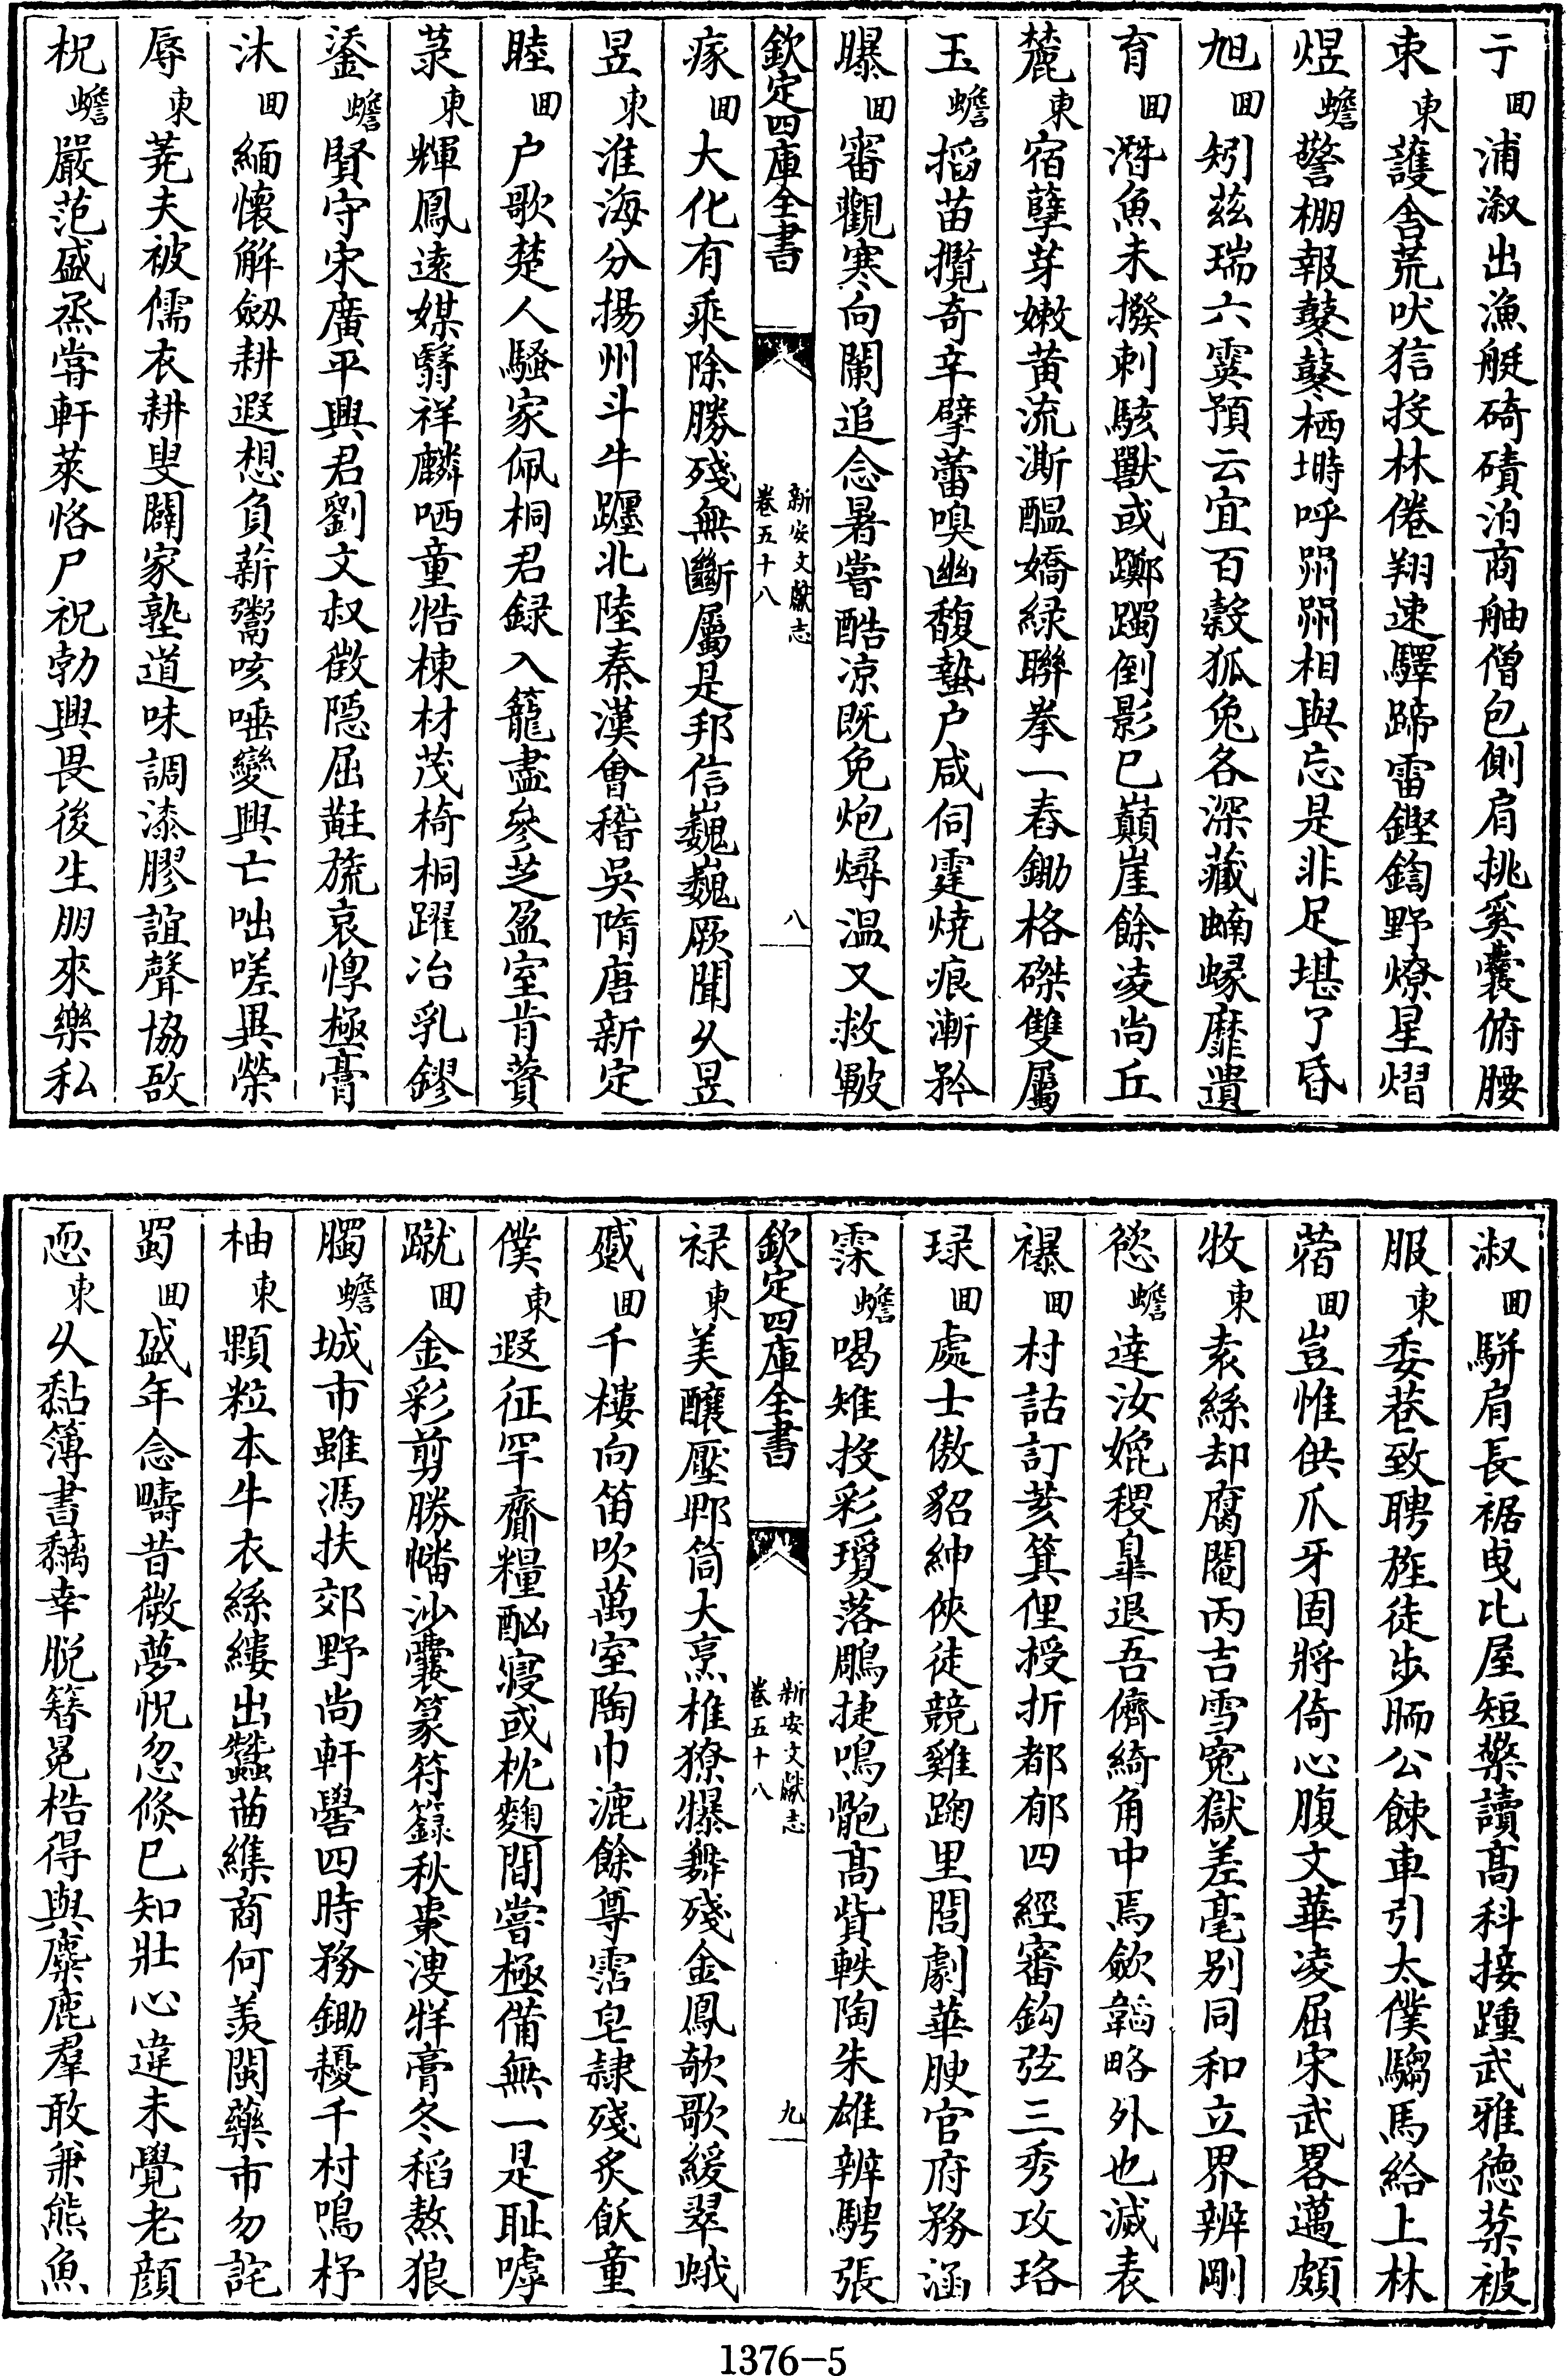 亍囬浦溆出漁艇碕磧泊商舳僧包側肩挑奚囊俯腰
束東護舎荒吠狺投林倦翔速驛蹄雷鏗鍧野燎星熠
煜蟾警棚報鼕鼕栖塒呼喌喌相與忘是非足堪了昏
旭囬矧兹瑞六霙預云宜百穀狐兔各深藏蝻蝝靡遺
育囬潛魚未撥刺駭獸或躑躅倒影已巔崖餘凌尚丘
麓東宿孽芽嫩黄流澌醖嬌緑聯拳一舂鋤格磔雙屬
玉蟾搯苗攬奇辛擘蕾嗅幽馥蟄户咸伺霆燒痕漸矜
曝囬審觀寒向闌追念暑嘗酷凉既免炮燖温又救皸
瘃囬大化有乘除勝殘無斷屬是邦信巍巍厥聞乆昱
昱東淮海分揚州斗牛躔北陸秦漢會稽吳隋唐新定
睦囬户歌楚人騷家佩桐君録入籠盡參芝盈室肯薋
菉東輝鳳逺媒翳祥麟哂童牿棟材茂椅桐躍冶乳鏐
鋈蟾賢守宋廣平興君劉文叔徵隠屈黈旒哀惸極膏
沐囬緬懷解劒耕遐想負薪鬻咳唾變興亡咄嗟異榮
辱東荛夫被儒衣耕叟闢家塾道味調漆膠誼聲協敔
柷蟾嚴范盛烝嘗軒萊恪尸祝勃興畏後生朋來樂私
欽定四庫全書
新安文獻志
卷五十八
八
淑囬駢肩長裾曳比屋短檠讀髙科接踵武雅徳棻被
服東委巷致聘旌徒步昞公餗車引太僕騶馬給上林
蓿囬豈惟供爪牙固將倚心腹文華凌屈宋武畧邁頗
牧東素絲却腐閹丙吉雪寃獄差毫别同和立界辨剛
慾蟾逹汝媲稷臯退吾儕綺角中焉歛韜略外也滅表
襮囬村詁訂亥箕俚授折都郁四經審鈎弦三秀攻珞
琭囬處士傲貂紳俠徒競雞踘里閭劇華腴官府務涵
霂蟾喝雉投彩瓊落鵰捷鳴骲髙貲軼陶朱雄辨騁張
禄東美醸壓郫筒大烹椎獠㸿舞殘金鳳欹歌緩翠蛾
蹙囬千樓向笛吹萬室陶巾漉餘尊霑皂隷殘炙飫童
僕東遐征罕齎糧酗寢或枕麴間嘗極備無一是恥嘑
蹴囬金彩剪勝幡沙囊篆符籙秋棗溲牂膏冬稻熬狼
臅蟾城市雖馮扶郊野尚軒嚳四時務鋤耰千村鳴杼
柚東顆粒本牛衣絲縷出蠶苖緤商何羡閩藥市勿詫
蜀囬盛年念疇昔微夢怳忽倐已知壯心違未覺老顔
恧東乆黏簿書黐幸脱簪冕梏得與麋鹿羣敢兼熊魚
欽定四庫全書
新安文獻志
卷五十八
九
1376-5